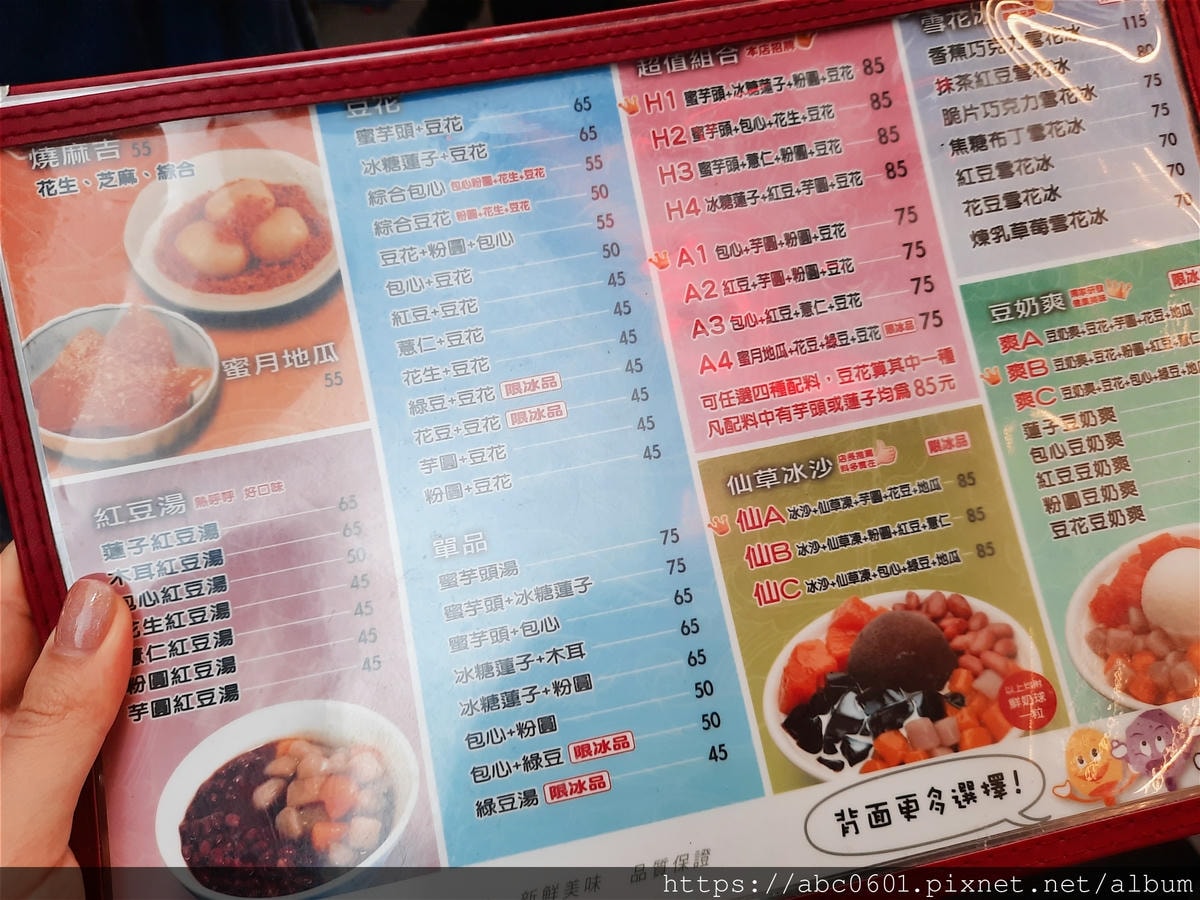 燒麻吉 55
花生、芝麻、綜合
蜜月地瓜
55
紅豆湯 熱呼呼 好口味
蓮子紅豆湯 65
木耳紅豆湯 65
包心紅豆湯 50
花生紅豆湯 45
薏仁紅豆湯 45
粉圓紅豆湯 45
芋圓紅豆湯 45
豆花
蜜芋頭+豆花 65
冰糖蓮子+豆花 65
綜合包心 包心粉圓+花生+豆花 55
綜合豆花 粉圓+花生+豆花 50
豆花+粉圓+包心 55
包心+豆花 50
紅豆+豆花 45
薏仁+豆花 45
花生+豆花 45
綠豆+豆花 限冰品 45
花豆+豆花 限冰品 45
芋圓+豆花 45
粉圓+豆花 45
單品
蜜芋頭湯 75
蜜芋頭+冰糖蓮子 75
蜜芋頭+包心 65
冰糖蓮子+木耳 65
冰糖蓮子+粉圓 65
包心+粉圓 50
包心+綠豆 限冰品 50
綠豆湯 限冰品 45
超值組合 本店招牌
H1 蜜芋頭+冰糖蓮子+粉圓+豆花 85
H2 蜜芋頭+包心+花生+豆花 85
H3 蜜芋頭+薏仁+粉圓+豆花 85
H4 冰糖蓮子+紅豆+芋圓+豆花 85
A1 包心+芋圓+粉圓+豆花 75
A2 紅豆+芋圓+粉圓+豆花 75
A3 包心+紅豆+薏仁+豆花 75
A4 蜜月地瓜+花豆+綠豆+豆花 限冰品 75
可任選四種配料，豆花算其中一種
凡配料中有芋頭或蓮子均為85元
仙草冰沙 店長推薦 料多實在 限冰品
仙A 冰沙+仙草凍+芋圓+花豆+地瓜 85
仙B 冰沙+仙草凍+粉圓+紅豆+薏仁 85
仙C 冰沙+仙草凍+包心+綠豆+地瓜 85
以上均附
鮮奶球
一粒
雪花冰
香蕉巧克力雪花冰 115
抹茶紅豆雪花冰 80
脆片巧克力雪花冰 75
焦糖布丁雪花冰 75
紅豆雪花冰 70
花豆雪花冰 70
煉乳草莓雪花冰 70
豆奶爽 獨家研發 限冰
爽A 豆奶爽+豆花+芋圓+花豆+地瓜
爽B 豆奶爽+豆花+粉圓+紅豆+薏仁
爽C 豆奶爽+豆花+包心+綠豆+地
蓮子豆奶爽
包心豆奶爽
紅豆豆奶爽
粉圓豆奶爽
豆花豆奶爽
背面更多選擇!
新鮮美味 品質保證
https://abc0601.pixnet.net/album